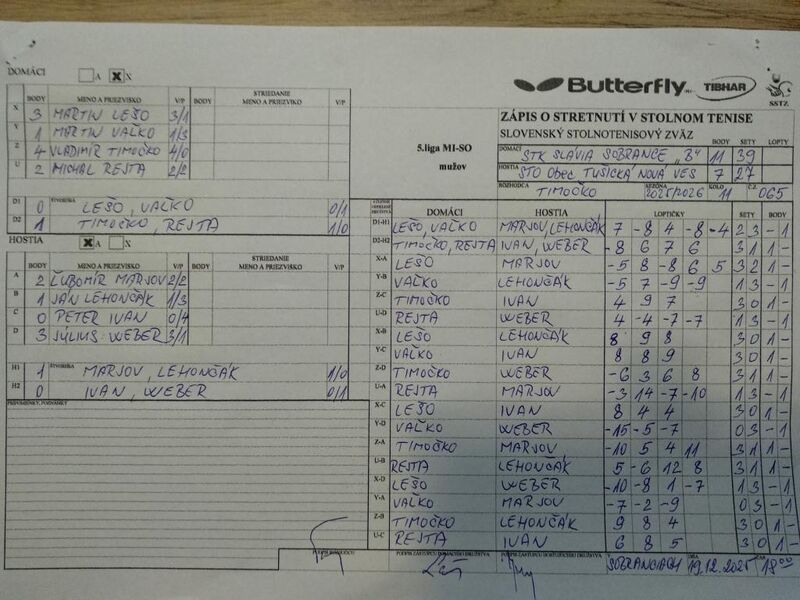 DOMÁCI A X
BODY MENO A PRIEZVISKO V/P BODY STRIEDANIE MENO A PRIEZVISKO V/P
X 3 MARTIN LEŠO 3/1
Y 1 MARTIN VAĽKO 1/3
Z 4 VLADIMÍR TIMOČKO 4/0
U 2 MICHAL REJTA 2/2
D1 0 ŠTVORHRA LEŠO, VAĽKO 0/1
D2 1 TIMOČKO, REJTA 1/0
HOSTIA A X
BODY MENO A PRIEZVISKO V/P BODY STRIEDANIE MENO A PRIEZVISKO V/P
A 2 ĽUBOMÍR MARJOV 2/2
B 1 JÁN LEHONČÁK 1/3
C 0 PETER IVAN 0/4
D 3 JÚLIUS WEBER 3/1
H1 1 ŠTVORHRA MARJOV, LEHONČÁK 1/0
H2 0 IVAN, WEBER 0/1
PRIPOMIENKY, PODPISY
Butterfly TIBHAR SSTZ
5.liga MI-SO
mužov
ZÁPIS O STRETNUTÍ V STOLNOM TENISE
SLOVENSKÝ STOLNOTENISOVÝ ZVÄZ BODY SETY LOPTY
DOMÁCI STK SLAVIA SOBRANCE "B" 11 39
HOSTIA STO Obec TUŠICKÁ NOVÁ VES 7 27
ROZHODCA TIMOČKO SEZÓNA 2025/2026 KOLO 11 Č.Z. 065
DOMÁCI HOSTIA LOPTIČKY SETY BODY
D1-H1 LEŠO, VAĽKO MARJOV, LEHONČÁK 7 -8 4 -8 -4 2 3 - 1
D2-H2 TIMOČKO, REJTA IVAN, WEBER -8 6 7 6 3 1 1 -
X-A LEŠO MARJOV -5 8 -8 6 5 3 2 1 -
Y-B VAĽKO LEHONČÁK -5 7 -9 -9 1 3 - 1
Z-C TIMOČKO IVAN 4 9 7 3 0 1 -
U-D REJTA WEBER 4 -4 -7 -7 1 3 - 1
X-B LEŠO LEHONČÁK 8 9 8 3 0 1 -
Y-C VAĽKO IVAN 8 8 9 3 0 1 -
Z-D TIMOČKO WEBER -6 3 6 8 3 1 1 -
U-A REJTA MARJOV -3 14 -7 -10 1 3 - 1
X-C LEŠO IVAN 8 4 4 3 0 1 -
Y-D VAĽKO WEBER -15 -5 -7 0 3 - 1
Z-A TIMOČKO MARJOV -10 5 4 11 3 1 1 -
U-B REJTA LEHONČÁK 5 -6 12 8 3 1 1 -
X-D LEŠO WEBER -10 -8 1 -7 1 3 - 1
Y-A VAĽKO MARJOV -7 -2 -9 0 3 - 1
Z-B TIMOČKO LEHONČÁK 9 8 4 3 0 1 -
U-C REJTA IVAN 6 8 5 3 0 1 -
PODPIS ROZHODCU PODPIS ZÁSTUPCU DOMÁCEHO DRUŽSTVA PODPIS ZÁSTUPCU HOSŤUJÚCEHO DRUŽSTVA V SOBRANCIACH DŇA 19.12.2025 ČAS 18:00